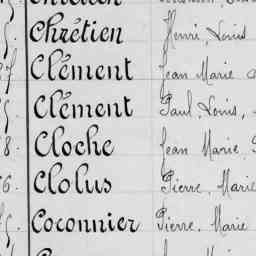 Chrétien
Chrétien Henri, Louis
Clément Jean Marie
Clément Paul, Louis,
8. Cloche Jean Marie,
6. Clolus Pierre, Marie
Coconnier Pierre, Marie